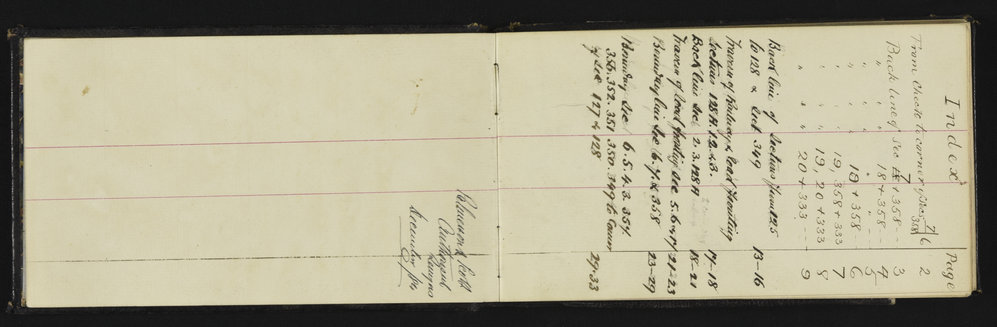 Index Page
From Check to corner of Sec 7/358/6 2
Back line of Sec 7 + 358 -- 3
" " " 18 + 358 -- 4
" " " " " -- 5
" " " 18 + 358 -- 6
" " " 19, 358 + 333 7
" " " 19, 20 + 333 8
" " " 20 + 333 -- 9
Back line of Sections from 125
to 128 & Sect 349 13-16
Traverse of & Road fronting
Section 128A.12.&3. 17-18
Back line Sec. 2.3.128A 18-21
Traverse of Road fronting Sec 5.6 & 7 21-23
Boundary line Sec 6.7 & 358 23-29
Boundary Sec 6.5.4.3.354
356.352.351.350.349 to Corner
of Sec 127 & 128 29-33
Authorized
Surveyors